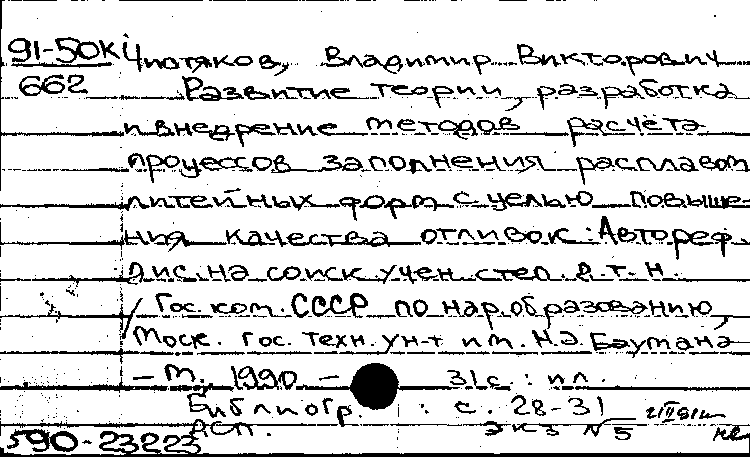 91-50к
662
Чистяков, Владимир Викторович
Развитие теории, разработка
и внедрение методов расчёта
процессов заполнения расплавом
литейных форм с целью повыше-
ния качества отливок: Автореф.
дис. на соиск. учен. степ. д. т. н.
/ Гос. ком. СССР по нар. образованию,
Моск. гос. техн. ун-т им. Н.Э. Баумана
– М., 1990 – 31 с : ил.
Библиогр. : с. 28-31
ДСП. экз № 5
590-23223